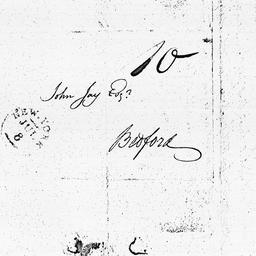 10
John Jay Esqr
NEW-YORK
JUL
8
Bedford